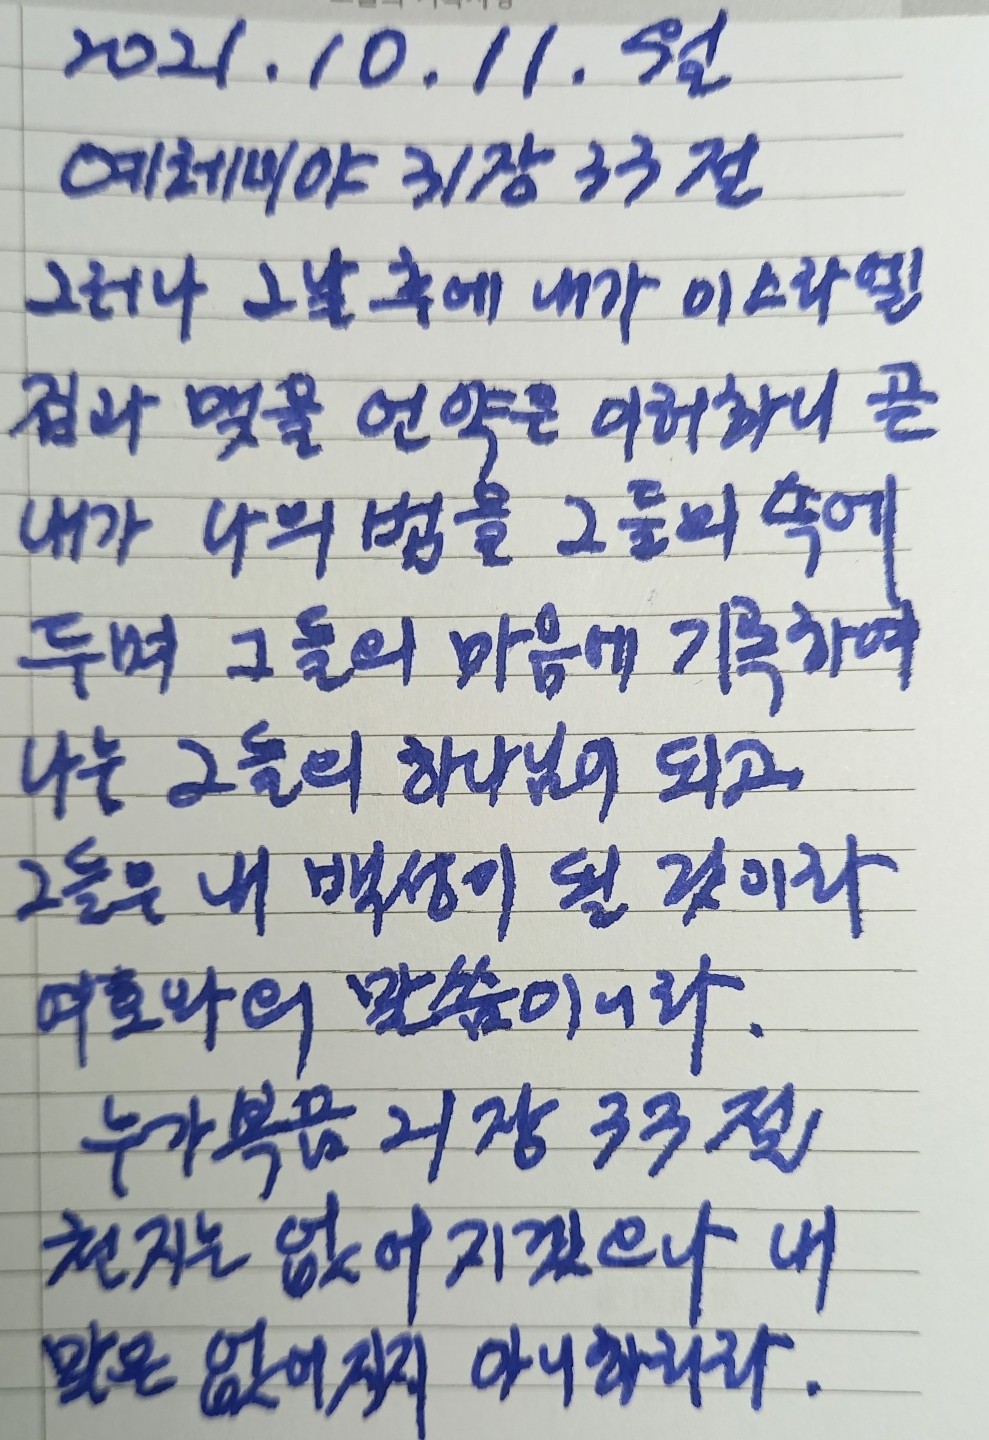 2021. 10. 11. 월
예레미야 31장 33절
그러나 그날 후에 내가 이스라엘
집과 맺을 언약은 이러하니 곧
내가 나의 법을 그들의 속에
두며 그들의 마음에 기록하여
나는 그들의 하나님이 되고
그들은 내 백성이 될 것이라
여호와의 말씀이니라.
누가복음 21장 33절
천지는 없어지겠으나 내
말은 없어지지 아니하리라.